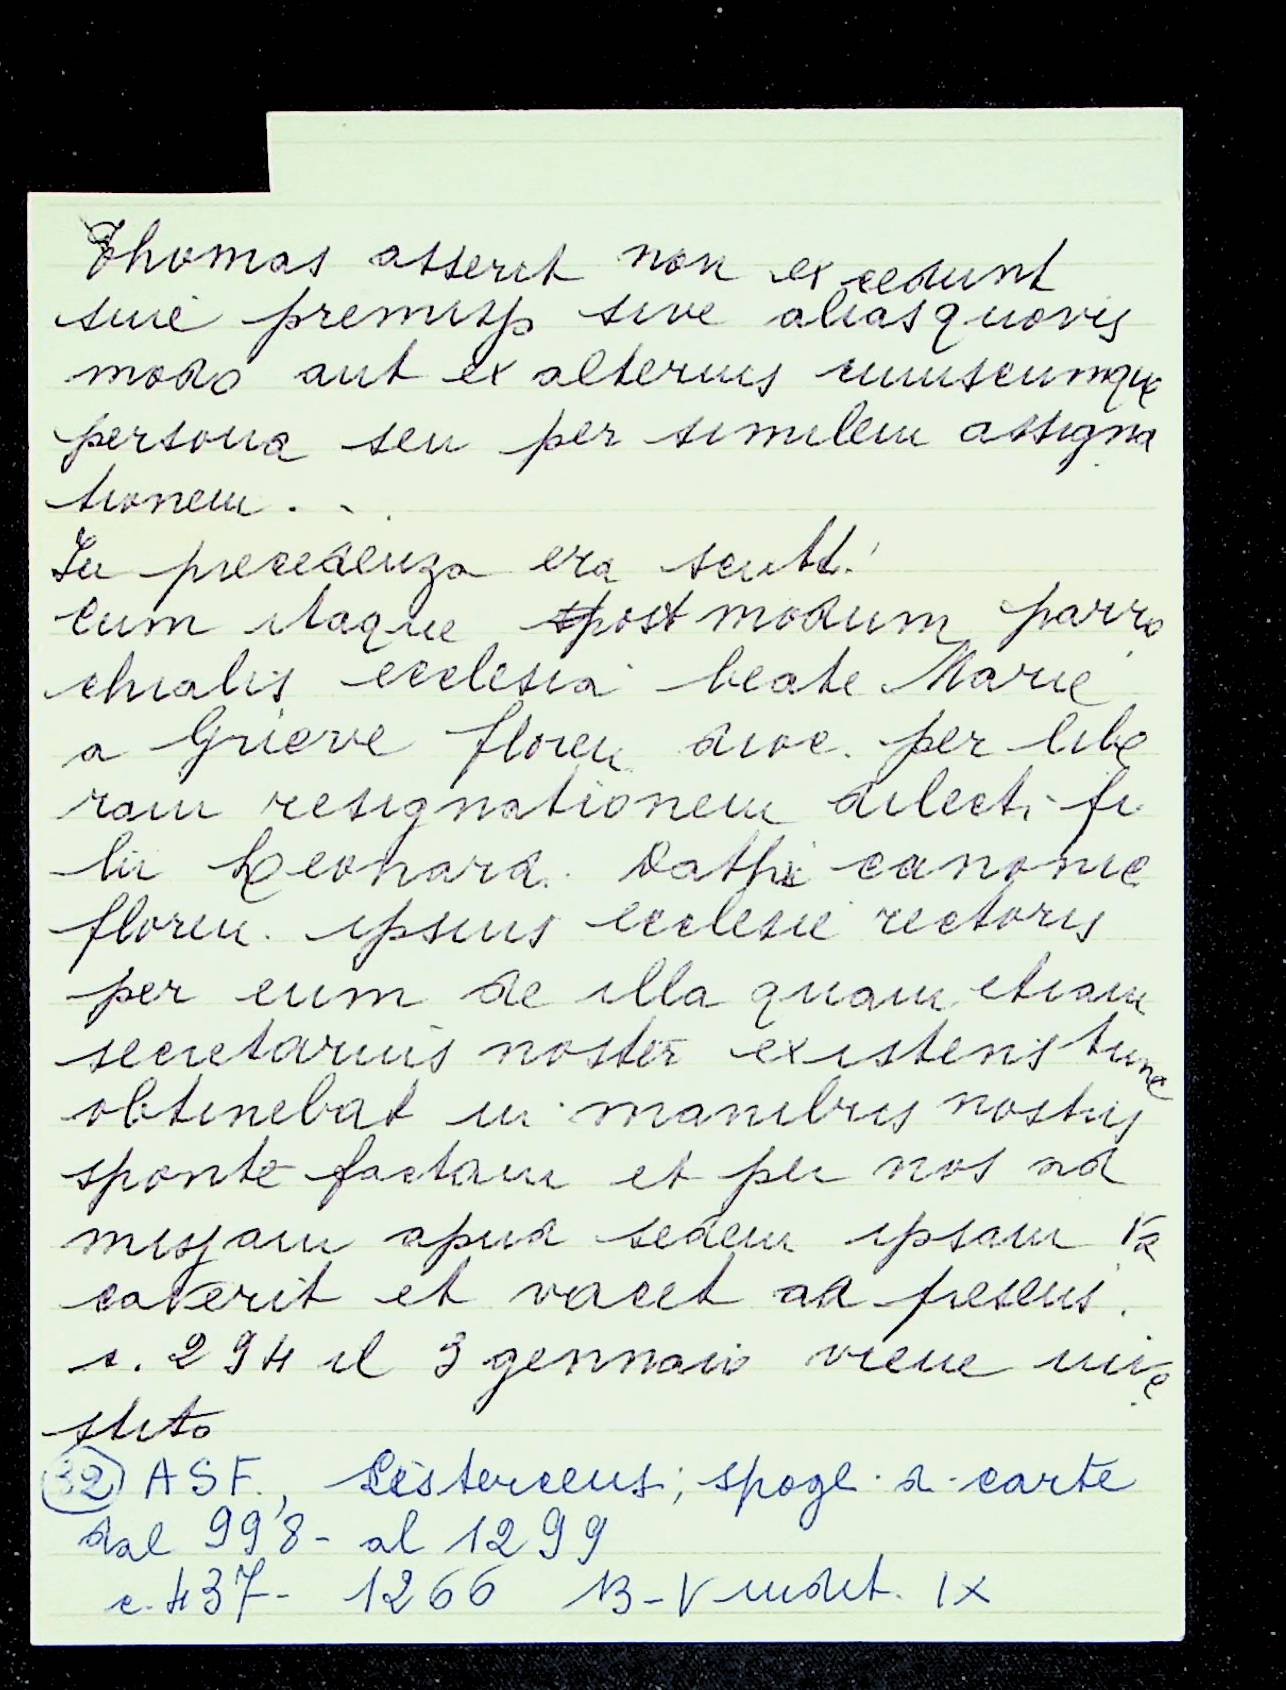 Thomas asserit non excedunt
sine premissp sive alias quovis
modo aut ex alterius cuiuscumque
persona seu per similem assigna
tionem . . .
In precedenza era scritt.
Cum itaque post modum parro
chialis ecclesia beate Marie
a Grieve floren dioc. per libe
ram resignationem dilecti fi
lii Leonard. Dathi canonic
floren. ipsius ecclesie rectoris
per eum de illa quam etiam
secretarius noster existens tunc
obtinebat in manibus nostris
sponte factam et per nos ad
missam apud sedem ipsam va
caverit et vacet ad presens.
c. 294 il 3 gennaio viene inve
stito
32 ASF., Cistercens; spogl. a carte
dal 998 - al 1299
c. 437 - 1266 13-V indit. IX